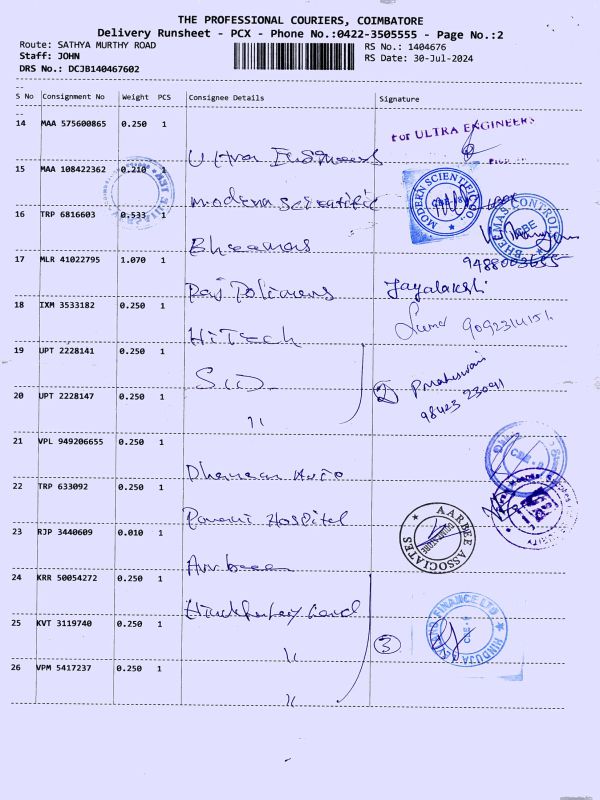 THE PROFESSIONAL COURIERS, COIMBATORE
Delivery Runsheet - PCX - Phone No.:0422-3505555 - Page No.:2
Route: SATHYA MURTHY ROAD
RS No.: 1404676
Staff: JOHN
RS Date: 30-Jul-2024
DRS No.: DCJB140467602
S No Consignment No Weight PCS Consignee Details Signature
14 MAA 575600865 0.250 1
For ULTRA ENGINEERS
Ultra Engineers
15 MAA 108422362 0.210 1
Modern Scientific
MODERN SCIENTIFIC CO.
16 TRP 6816603 0.533 1
BHEEMAS CONTROL CBE
Bheemas
17 MLR 41022795 1.070 1
9488003655
Raj Polimers Jayalakshi
18 IXM 3533182 0.250 1
HiTech 9092314151
19 UPT 2228141 0.250 1
2 Pmaheswari
98423 23091
20 UPT 2228147 0.250 1
"
21 VPL 949206655 0.250 1
CBE - 8
22 TRP 633092 0.250 1
Hospital
23 RJP 3440609 0.010 1
AARBEE ASSOCIATES
24 KRR 50054272 0.250 1
25 KVT 3119740 0.250 1
HINDUJA FINANCE LTD
3
"
26 VPM 5417237 0.250 1
"